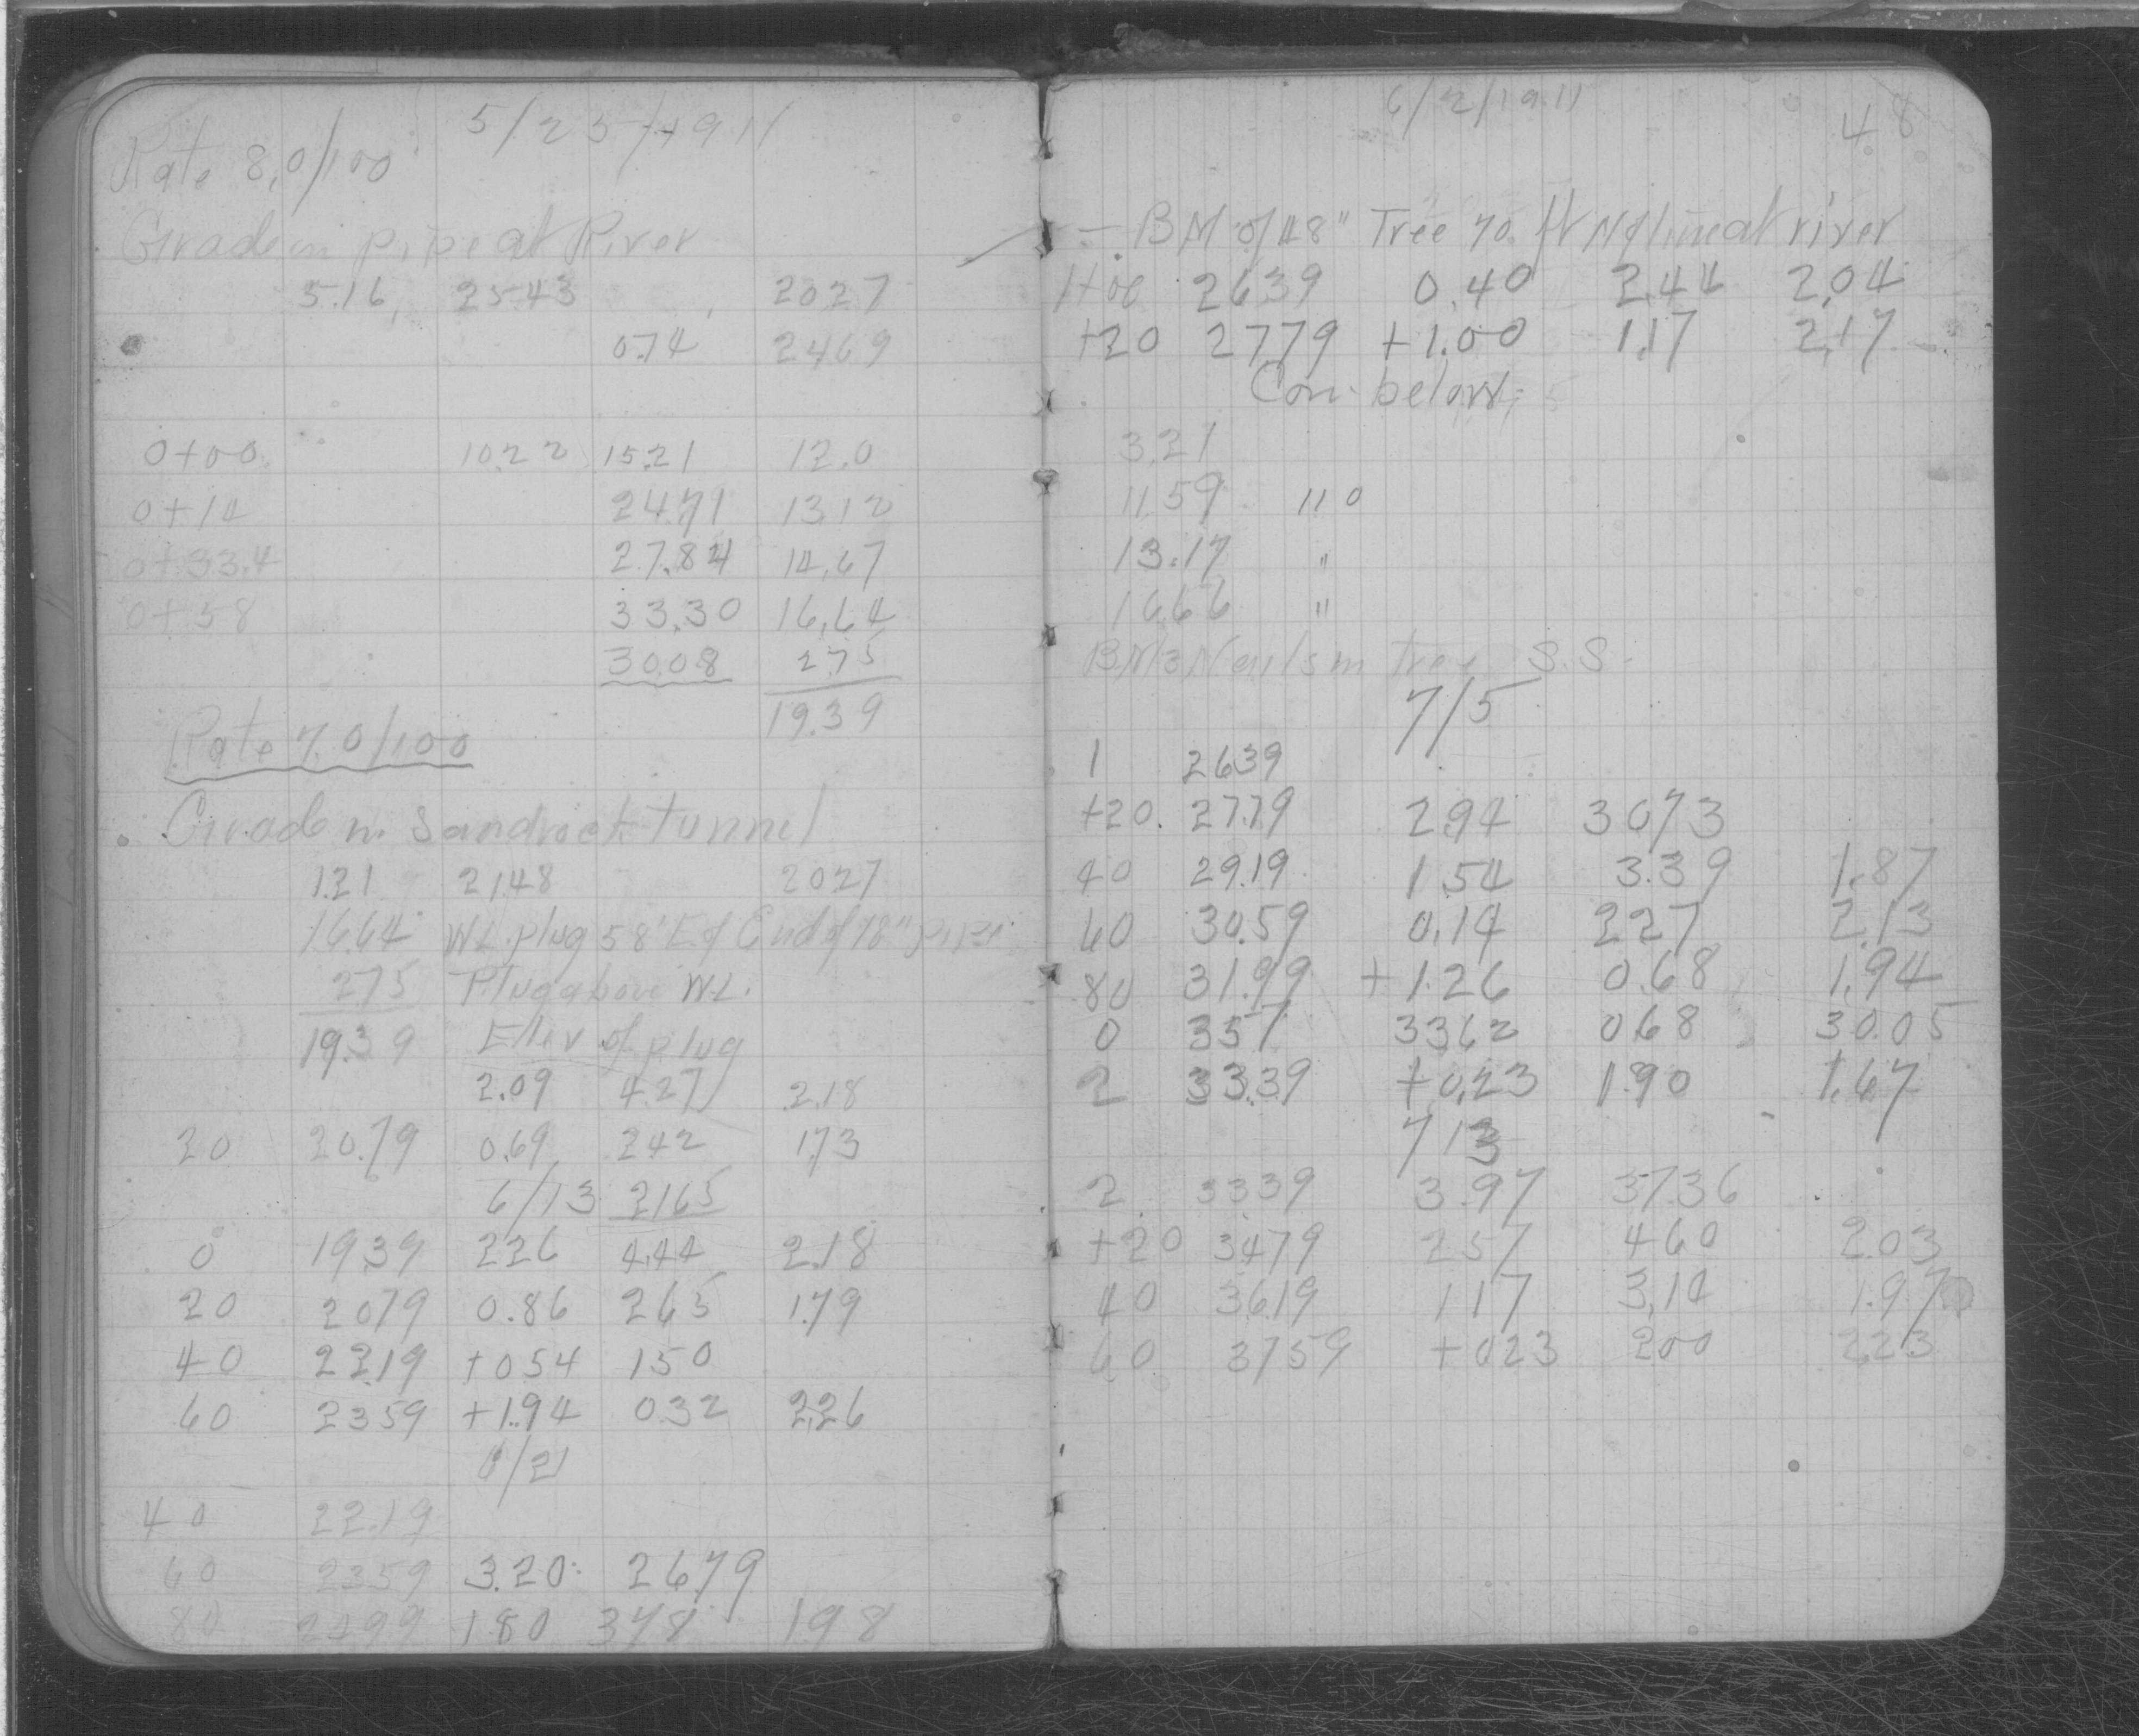 5/25/1911
Rate 8.0/100
Grade in pipe at River
5.16 25.43 20.27
0.74 24.69
0+00 10.22 15.21 12.0
0+14 24.71 13.12
0+33.4 27.84 14.67
0+58 33.30 16.64
30.08 2.75
19.39
Rate 7.0/100
Grade in Sandrock tunnel
1.21 21.48 20.27
16.64 W.L. plug 58' E of End of 78" pipe
2.75 Plug above W.L.
19.39 Elev of plug
2.09 4.27 2.18
20 20.79 0.69 2.42 1.73
6/13 21.65
0 19.39 2.26 4.44 2.18
20 20.79 0.86 2.65 1.79
40 22.19 +0.54 1.50
60 23.59 +1.94 0.32 2.26
6/21
40 22.19
60 23.59 3.20 26.79
80 24.99 1.80 3.78 1.98
6/2/1911
48
BM of 48" Tree 70 ft N of line at river
1+00 26.39 0.40 2.44 2.04
+20 27.79 +1.00 1.17 2.17
Con. below
3.21
11.59 11 0
13.17 "
16.66 "
BM 3 Nails in tree S.S.
7/5
1 26.39
+20 27.79 2.94 30.73
40 29.19 1.54 3.39 1.87
60 30.59 0.14 2.27 2.13
80 31.99 +1.26 0.68 1.94
0 3.57 33.62 0.68 30.05
2 33.39 +0.23 1.90 1.67
7/3
2 33.39 3.97 37.36
+20 34.79 2.57 4.60 2.03
40 36.19 1.17 3.14 1.97
60 37.59 +0.23 2.00 2.23